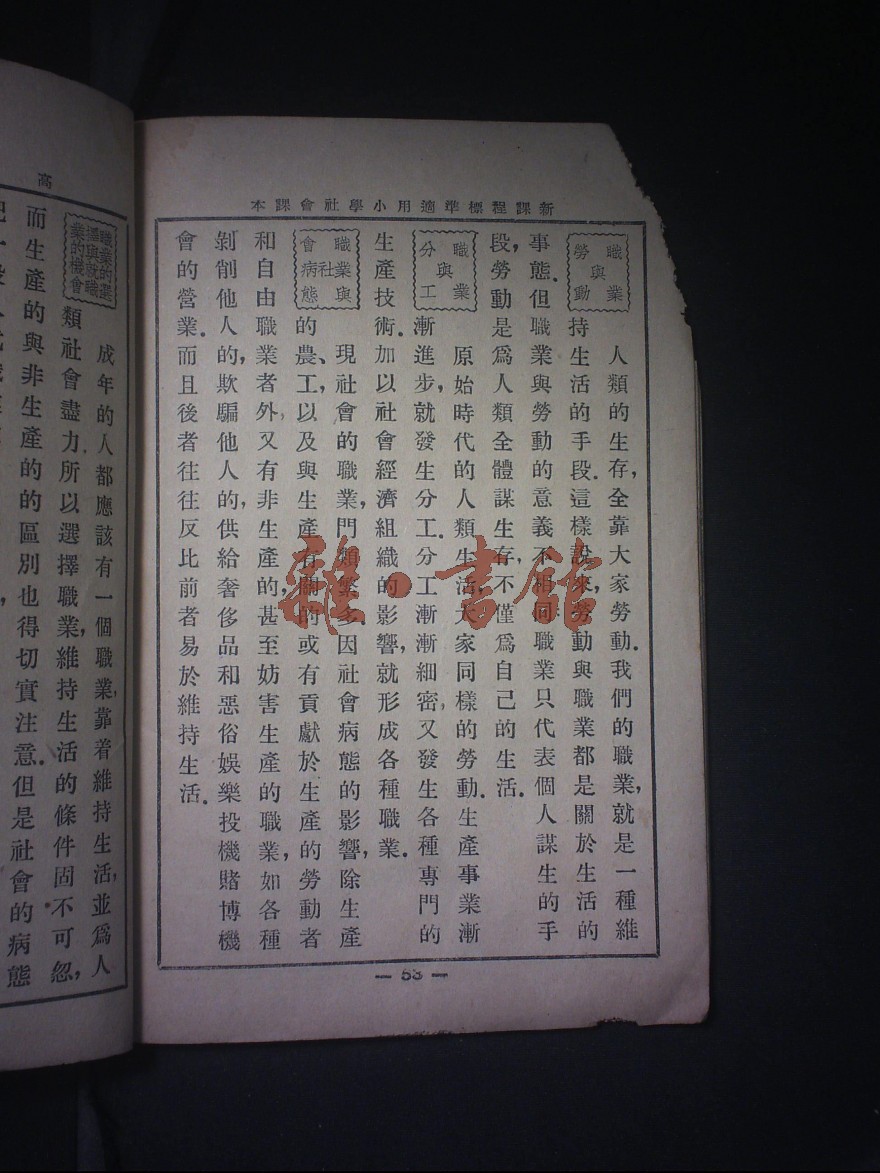 新課程標準適用小學社會課本
職業與勞動
人類的生存,全靠大家勞動.我們的職業,就是一種維
持生活的手段.這樣說來,勞動與職業都是關於生活的
事態.但職業與勞動的意義不相同.職業只代表個人謀生的手
段,勞動是爲人類全體謀生存,不僅爲自己的生活.
職業與分工
原始時代的人類生活,大家同樣的勞動.生產事業漸
漸進步,就發生分工.分工漸漸細密,又發生各種專門的
生產技術.加以社會經濟組織的影響,就形成各種職業.
職業與社會病態
現社會的職業,門類繁多.因社會病態的影響,除生產
的農、工,以及與生產有關的或有貢獻於生產的勞動者
和自由職業者外,又有非生產的,甚至妨害生產的職業,如各種
剝削他人的,欺騙他人的,供給奢侈品和惡俗娛樂投機賭博機
會的營業.而且後者往往反比前者易於維持生活.
— 53 —
高
職業的選擇與就職業的機會
成年的人都應該有一個職業,靠着維持生活,並爲人
類社會盡力.所以選擇職業,維持生活的條件固不可忽,
而生產的與非生產的的區別也得切實注意.但是社會的病態
雜·書館